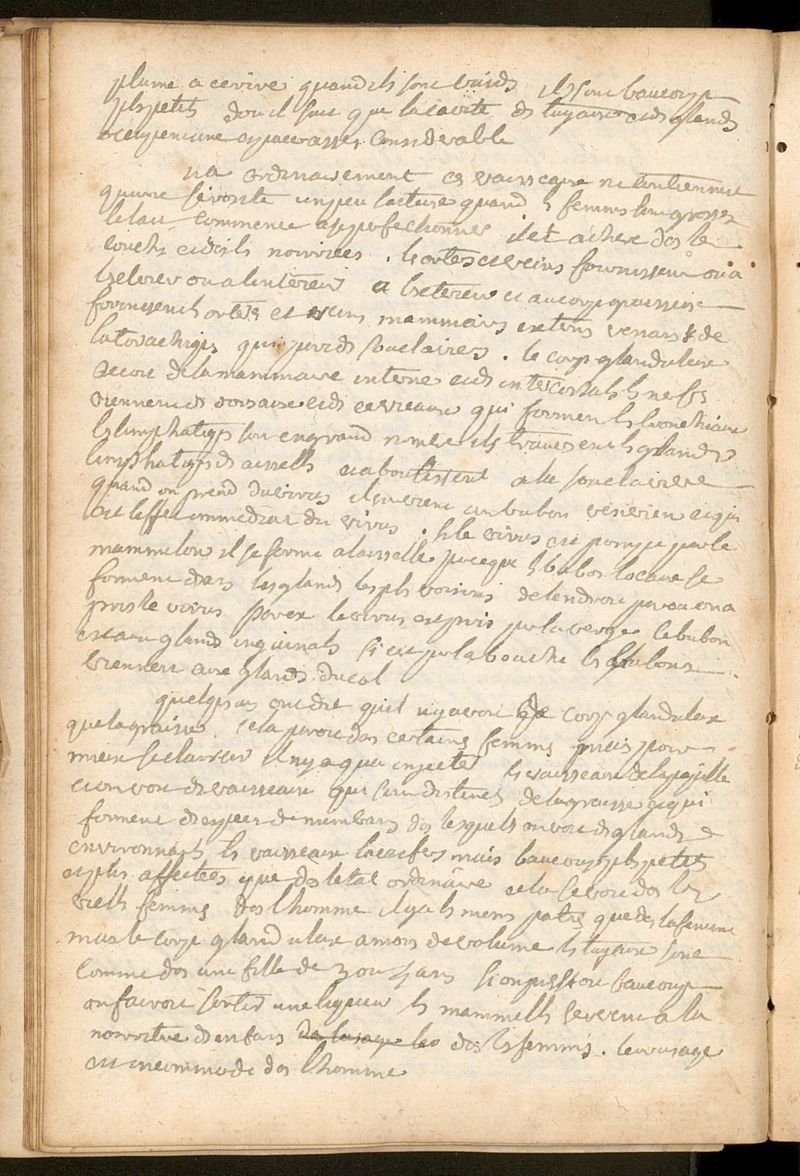 plume a ecrire quand ils sont vuids ils sont beaucoup
plus petits dou il suit que la cavite des tuyaux et des glands
occupent une espace assez considerable
na ordinairement ces vaisseaux ne contiennent
quune serosite un peu laiteuse quand les femmes sont grosses
le lait commence a se perfectionner il est acheve dos le
couches et dos les nourices . les artes et veins fournissent ou a
lexterieur ou a linterieur a lexterieur et au corps graisseux
fournissent les arteres et veins mammaires externs venans de
la torachique qui vient des souclaires . le corps glanduleux
recoit de la mammaire interne et des intercostals les nerfs
viennent des dorsaux et des cervicaux qui forment les bronchiaux
les limphatiqs sont en grand nombre ils traversent les glandes
limphatiqs des aisselles et aboutissent a la souclaviere
quand on prend du virus il survient un bubon venerien et qui
est leffet immediat du virus . si le virus est pompe par le
mammelon il se forme a laisselle parceque les bubos locaux se
forment dans les glands les plus voisins de lendroit par ou on a
pris le virus si le virus est pris par la verge le bubon
est aux glands inguinals si cest par la bouche les bubons
viennent aux glands du col
quelques uns ont dit quil ny avoit de corps glanduleux
que la graisse . cela paroit dos certains femmes mais pour
mieux seclaircir il ny a qua injecter les vaisseaux de la papille
et on voit des vaisseaux qui sont distincts de la graisse et qui
forment des especes de membrans dos lesquels on voit des glands
environnants les vaisseaux lactifers mais beaucoup plus petits
et plus affectees que dos letat ordinaire cela se voit dos les
vieills femmes dos lhomme il y a les mems partis que dos la femme
mais le corps glanduleux a moins de volume les tuyaux sont
comme dos une fille de 3 ou 4 ans si on pressoit beaucoup
on faisoit sortir une liqueur les mammells servent a la
nouriture des enfans dos les femmes . leur usage
est incommode dos lhomme